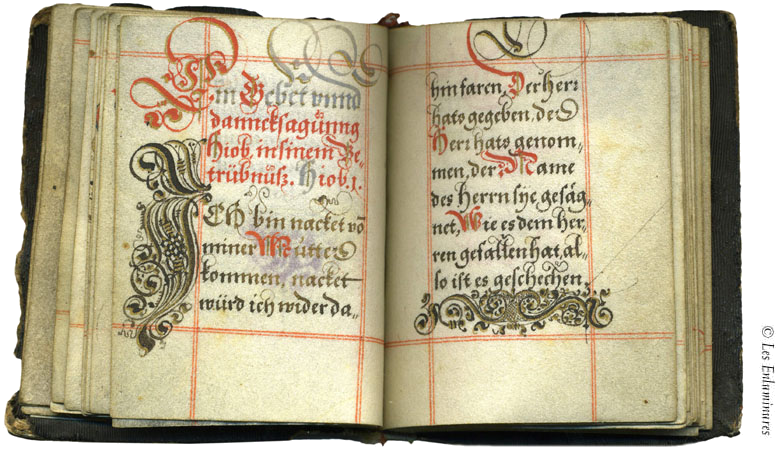 Ein Gebet vnnd
dancksagüng
Hiob, in sinem Be-
trübnüsz. Hiob. 1.
ICH bin nacket vō
miner Mütter
kommen, nacket
würd ich wider da-
hin faren, Der herr
hats gegeben, der
Herr hats genom-
men, der Name
des herrn sye gesäg-
net, Wie es dem her-
ren gefallen hat, al-
so ist es geschechen.
© Les Enluminures